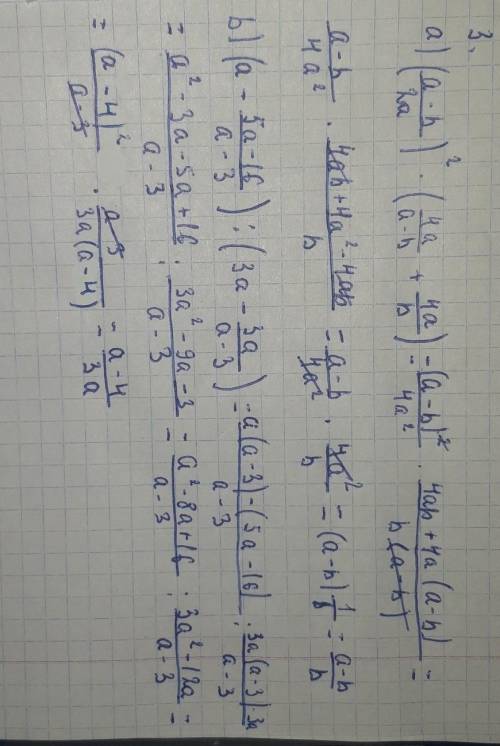 3.
a) ((a-b)/2a)² · (4a/(a-b) + 4a/b) = (a-b)²/4a² · (4ab+4a(a-b))/(b(a-b)) =
(a-b)/4a² · (4ab+4a²-4ab)/b = (a-b)/4a² · 4a²/b = (a-b) 1/b = (a-b)/b
b) (a - (5a-16)/(a-3)) : (3a - 3a/(a-3)) = (a(a-3)-(5a-16))/(a-3) : (3a(a-3)-3a)/(a-3)
= (a²-3a-5a+16)/(a-3) : (3a²-9a-3)/(a-3) = (a²-8a+16)/(a-3) : (3a²-12a)/(a-3) =
= (a-4)²/(a-3) · (a-3)/(3a(a-4)) = (a-4)/3a